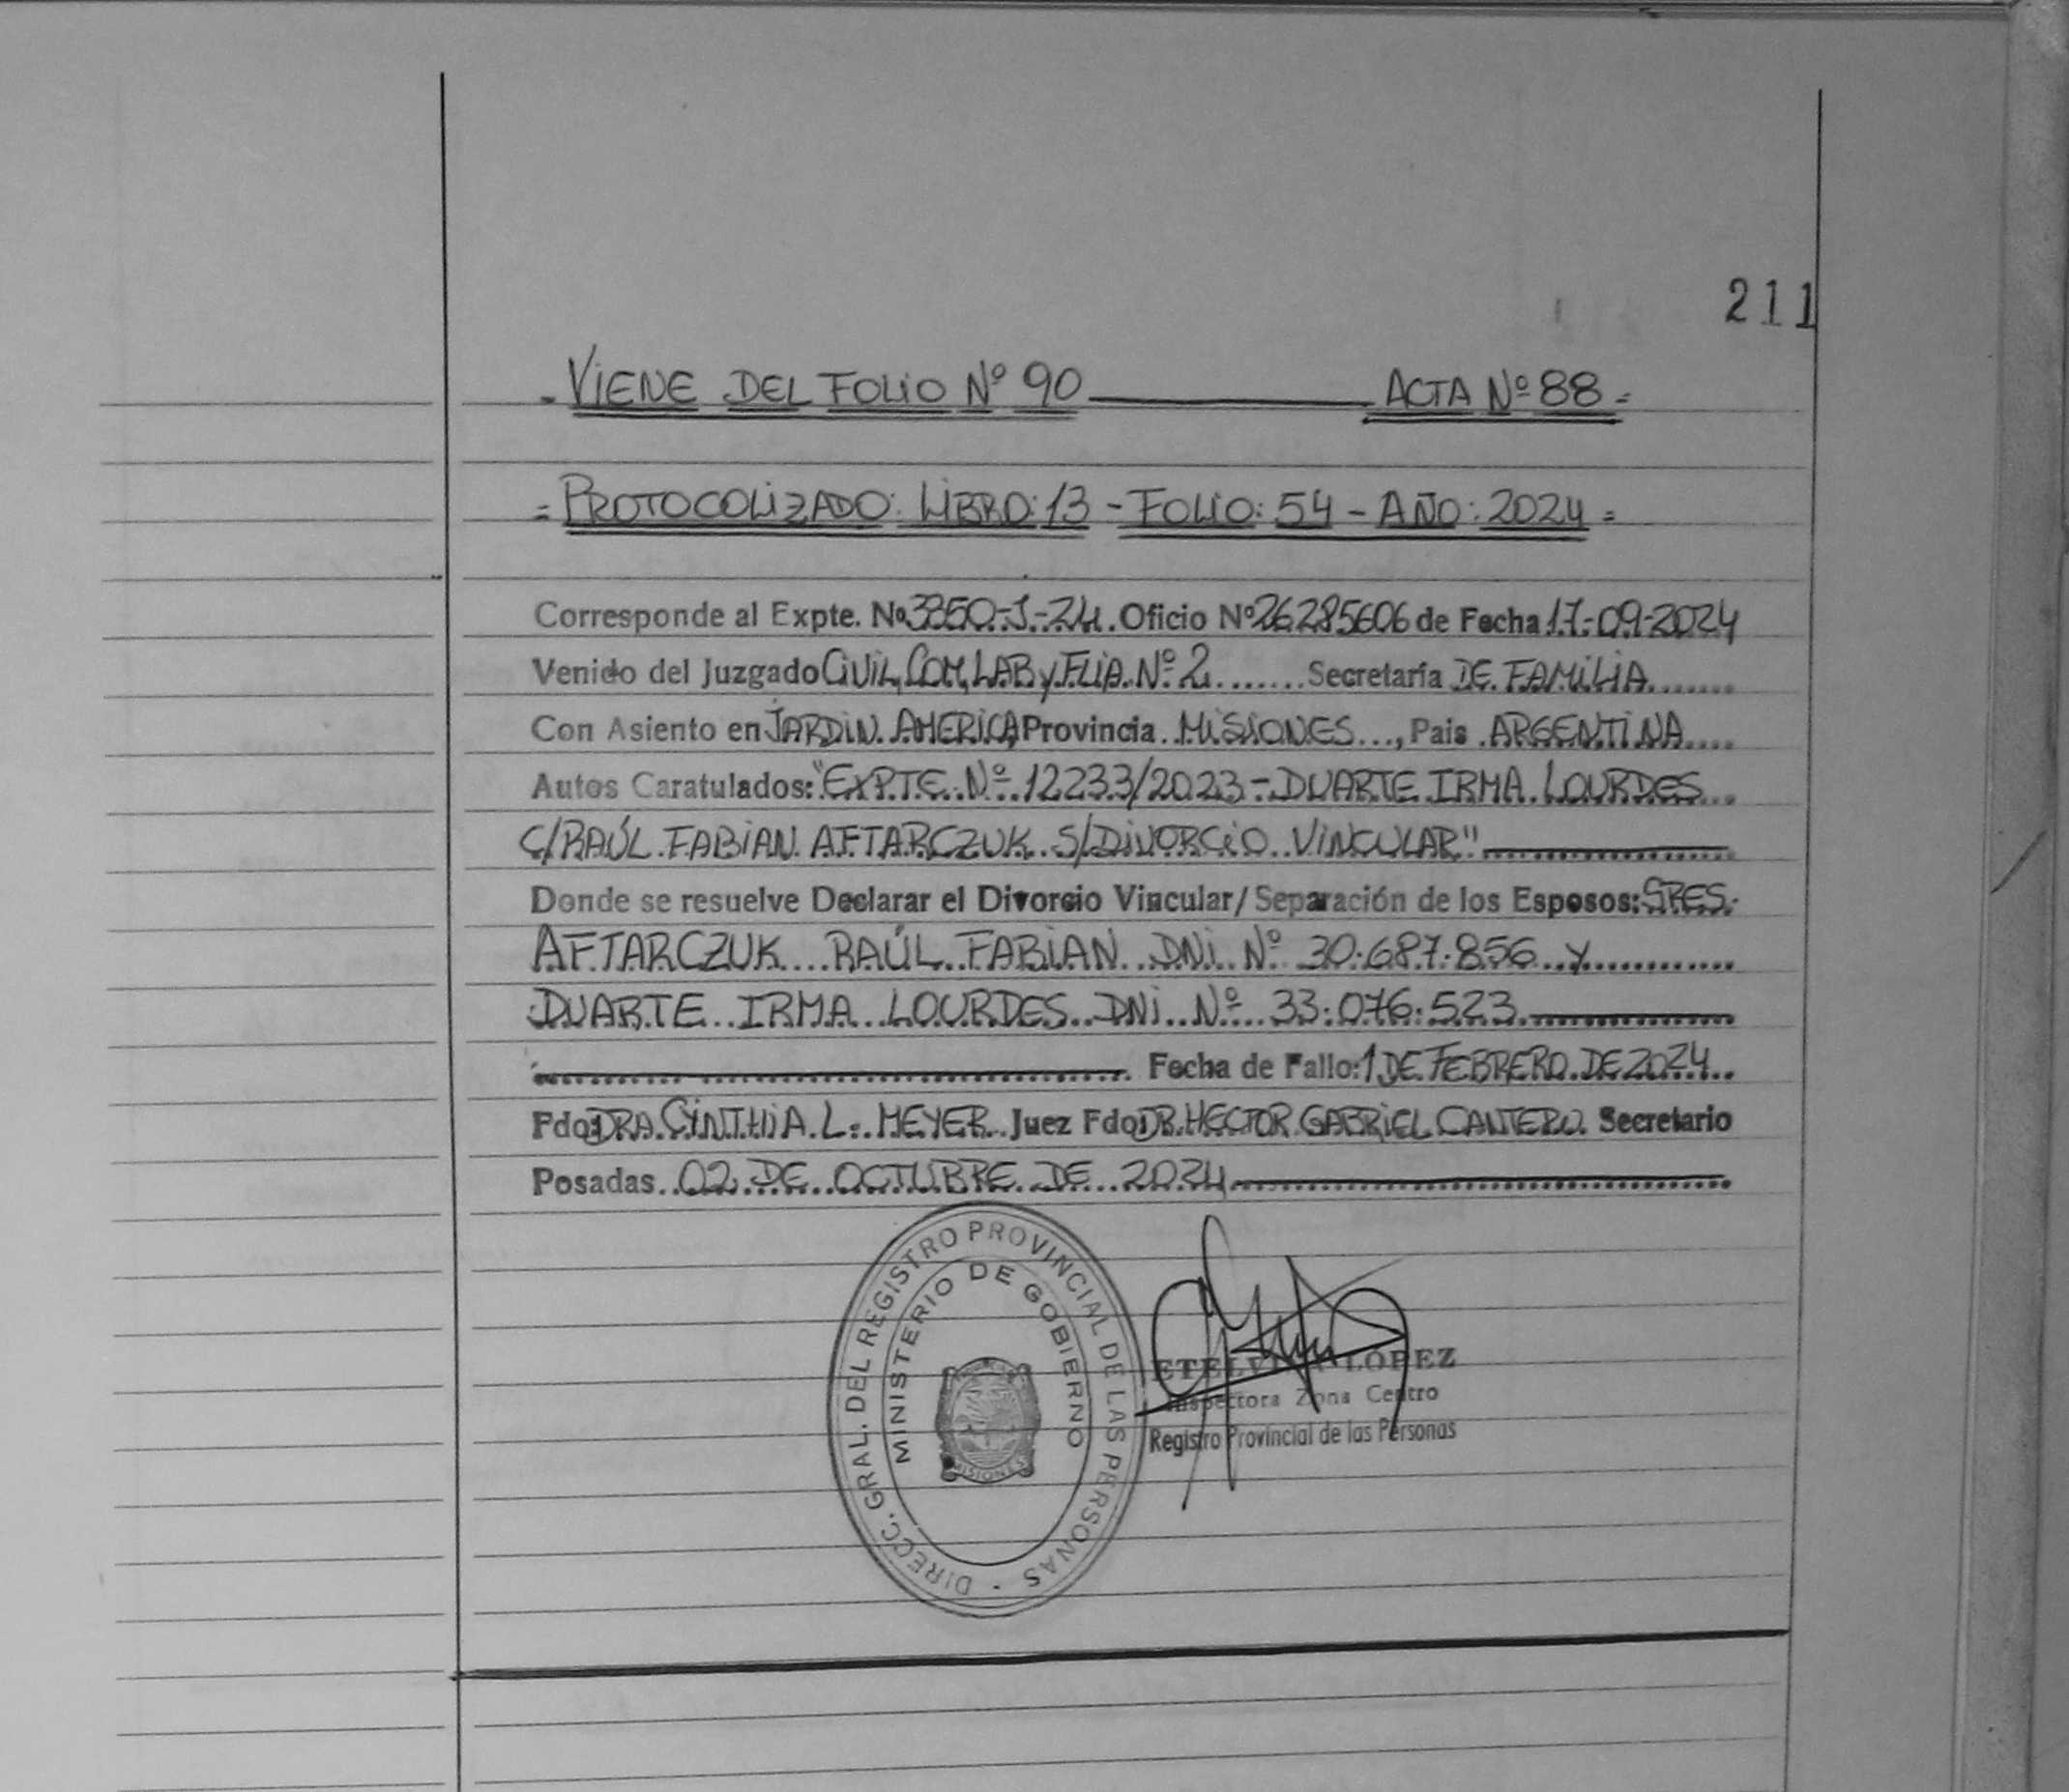 211
VIENE DEL FOLIO Nº 90 ACTA Nº 88
PROTOCOLIZADO: LIBRO: 13 - FOLIO: 54 - AÑO: 2024
Corresponde al Expte. Nº 3350-J-24 Oficio Nº 26285606 de Fecha 17-09-2024
Venido del Juzgado CIVIL, COM, LAB y FLIA. Nº 2 Secretaría DE FAMILIA
Con Asiento en JARDIN AMERICA, Provincia MISIONES, Pais ARGENTINA
Autos Caratulados: "EXPTE Nº 12233/2023 - DUARTE IRMA LOURDES
C/RAÚL FABIAN AFTARCZUK S/DIVORCIO VINCULAR"
Donde se resuelve Declarar el Divorcio Vincular/Separación de los Esposos: SRES.
AFTARCZUK RAÚL FABIAN DNI Nº 30.687.856 y
DUARTE IRMA LOURDES DNI Nº 33.076.523
Fecha de Fallo: 1 DE FEBRERO DE 2024
Fdo: DRA. CYNTHIA L. MEYER Juez Fdo: DR. HECTOR GABRIEL CANTERO Secretario
Posadas 02 DE OCTUBRE DE 2024
DIRECC. GRAL. DEL REGISTRO PROVINCIAL DE LAS PERSONAS
MINISTERIO DE GOBIERNO
MISIONES
ETELVINA LOPEZ
Inspectora Zona Centro
Registro Provincial de las Personas